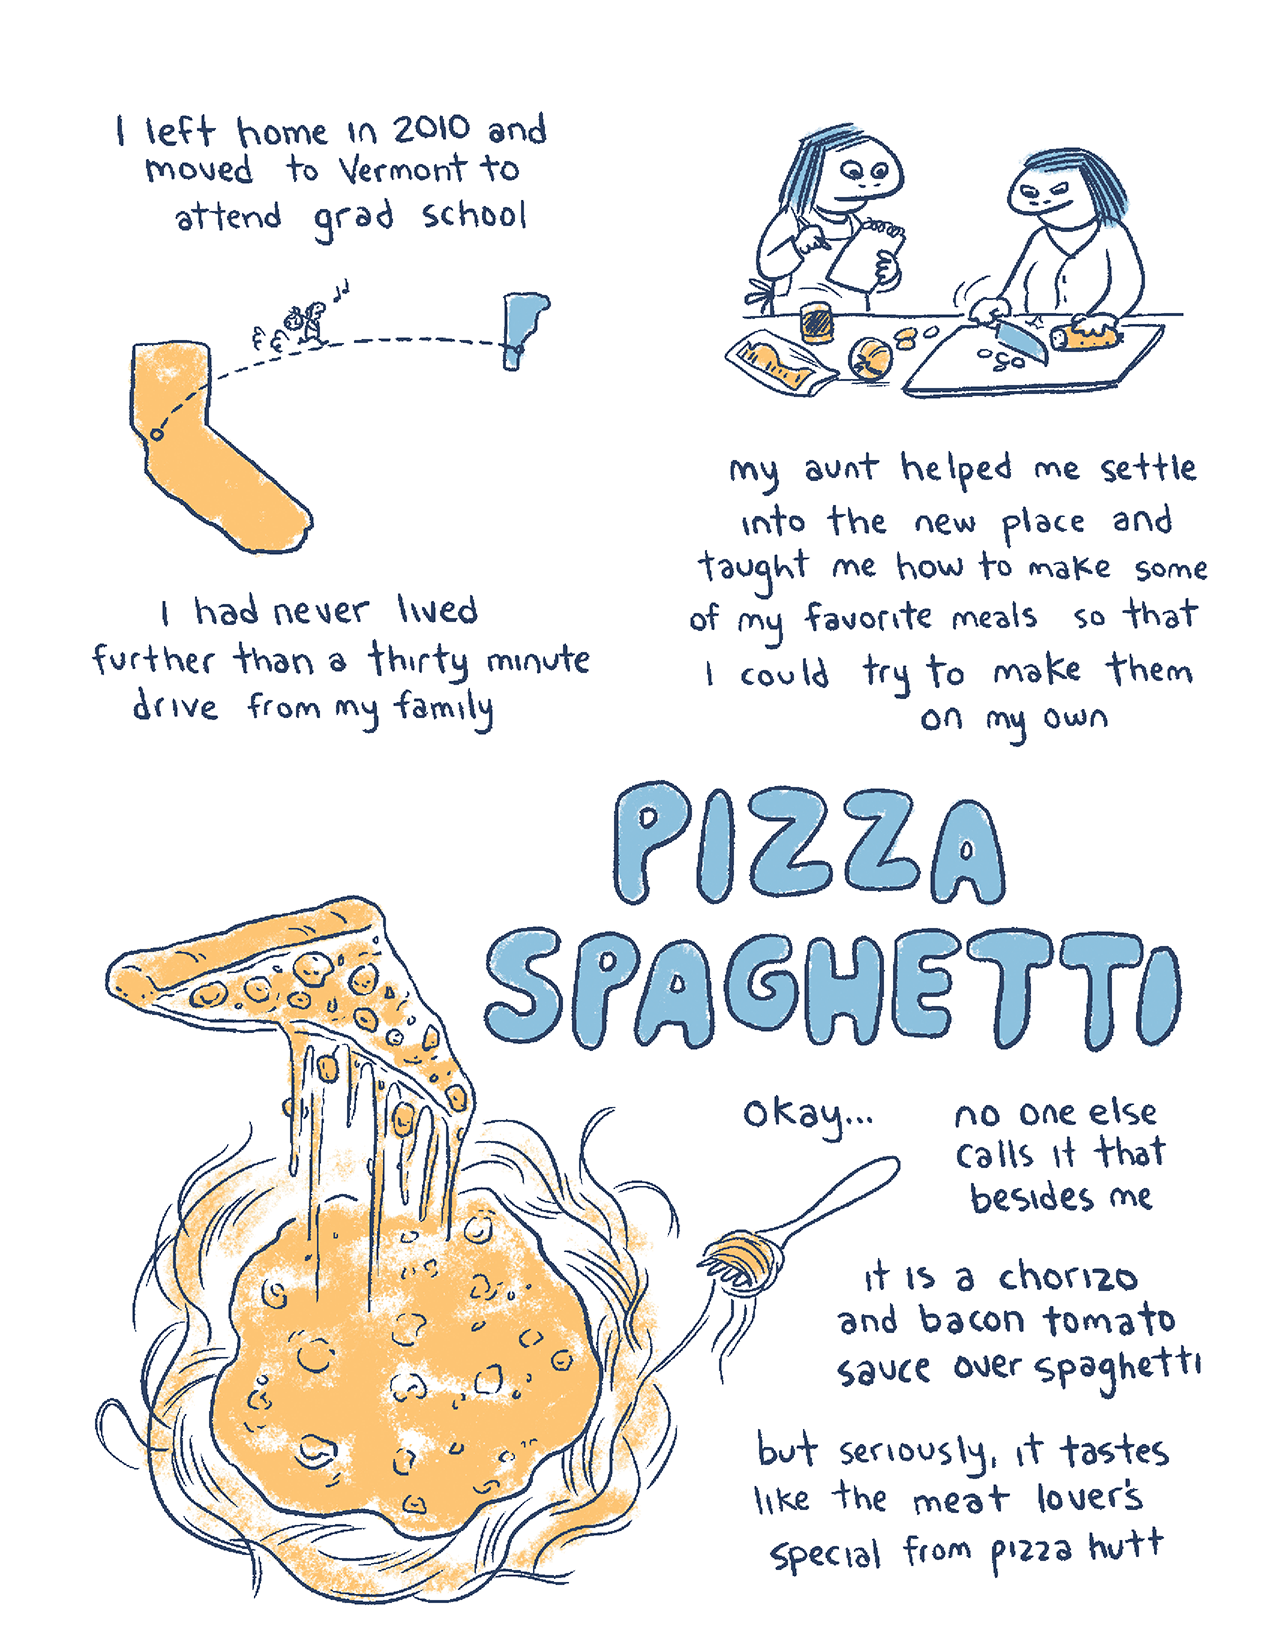 I left home in 2010 and
moved to Vermont to
attend grad school
I had never lived
further than a thirty minute
drive from my family
my aunt helped me settle
into the new place and
taught me how to make some
of my favorite meals so that
I could try to make them
on my own
PIZZA
SPAGHETTI
okay...
no one else
calls it that
besides me
it is a chorizo
and bacon tomato
sauce over spaghetti
but seriously, it tastes
like the meat lover's
special from pizza hutt